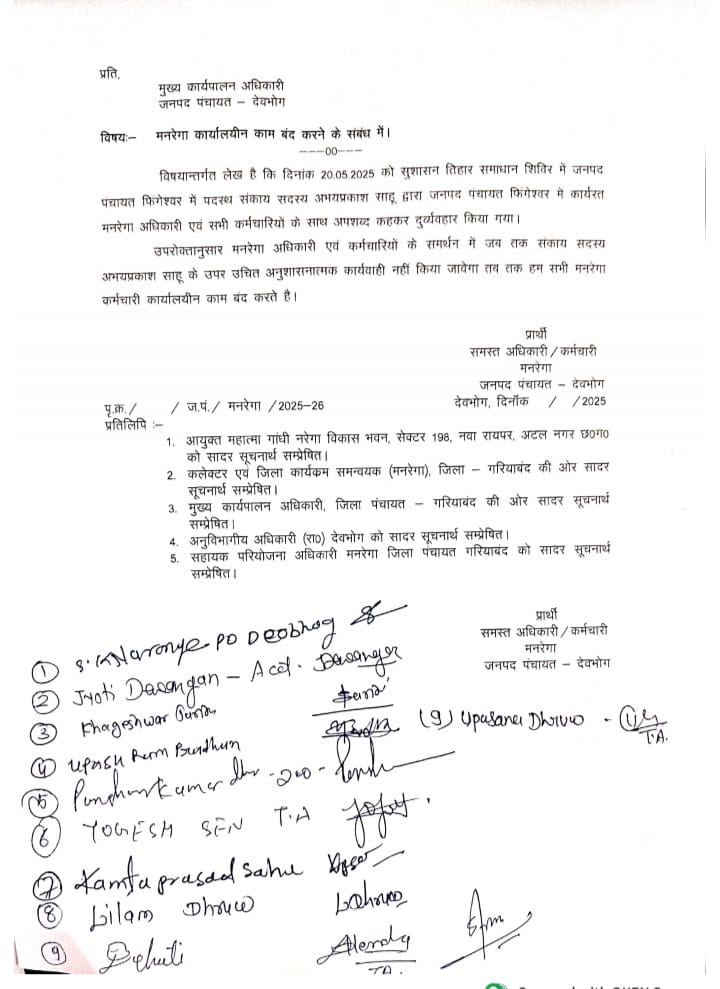 प्रति,
मुख्य कार्यपालन अधिकारी
जनपद पंचायत – देवभोग
विषयः– मनरेगा कार्यालयीन काम बंद करने के संबंध में।
---00---
विषयान्तर्गत लेख है कि दिनांक 20.05.2025 को सुशासन तिहार समाधान शिविर में जनपद
पंचायत फिंगेश्वर में पदस्थ संकाय सदस्य अभयप्रकाश साहू द्वारा जनपद पंचायत फिंगेश्वर में कार्यरत
मनरेगा अधिकारी एवं सभी कर्मचारियों के साथ अपशब्द कहकर दुर्व्यवहार किया गया।
उपरोक्तानुसार मनरेगा अधिकारी एवं कर्मचारियों के समर्थन में जब तक संकाय सदस्य
अभयप्रकाश साहू के उपर उचित अनुशासनात्मक कार्यवाही नहीं किया जावेगा तब तक हम सभी मनरेगा
कर्मचारी कार्यालयीन काम बंद करते है।
प्रार्थी
समस्त अधिकारी/कर्मचारी
मनरेगा
जनपद पंचायत – देवभोग
पृ.क्र./ / ज.पं./ मनरेगा /2025-26 देवभोग, दिनॉक / /2025
प्रतिलिपि :–
1. आयुक्त महात्मा गांधी नरेगा विकास भवन, सेक्टर 198, नवा रायपर, अटल नगर छ०ग०
को सादर सूचनार्थ सम्प्रेषित।
2. कलेक्टर एवं जिला कार्यकम समन्वयक (मनरेगा), जिला – गरियाबंद की ओर सादर
सूचनार्थ सम्प्रेषित।
3. मुख्य कार्यपालन अधिकारी, जिला पंचायत – गरियाबंद की ओर सादर सूचनार्थ
सम्प्रेषित।
4. अनुविभागीय अधिकारी (रा०) देवभोग को सादर सूचनार्थ सम्प्रेषित।
5. सहायक परियोजना अधिकारी मनरेगा जिला पंचायत गरियाबंद को सादर सूचनार्थ
सम्प्रेषित।
प्रार्थी
समस्त अधिकारी/कर्मचारी
मनरेगा
जनपद पंचायत – देवभोग
① PO Deobhog
② Jyoti Dasangan – Acct.
③ Khageshwar
④ Upasu Ram (9) Upasana Dhruw - T.A.
⑤
⑥ YOGESH SEN T.A
⑦ Kamta prasad Sahu
⑧ Lilam Dhruw
⑨
TA.